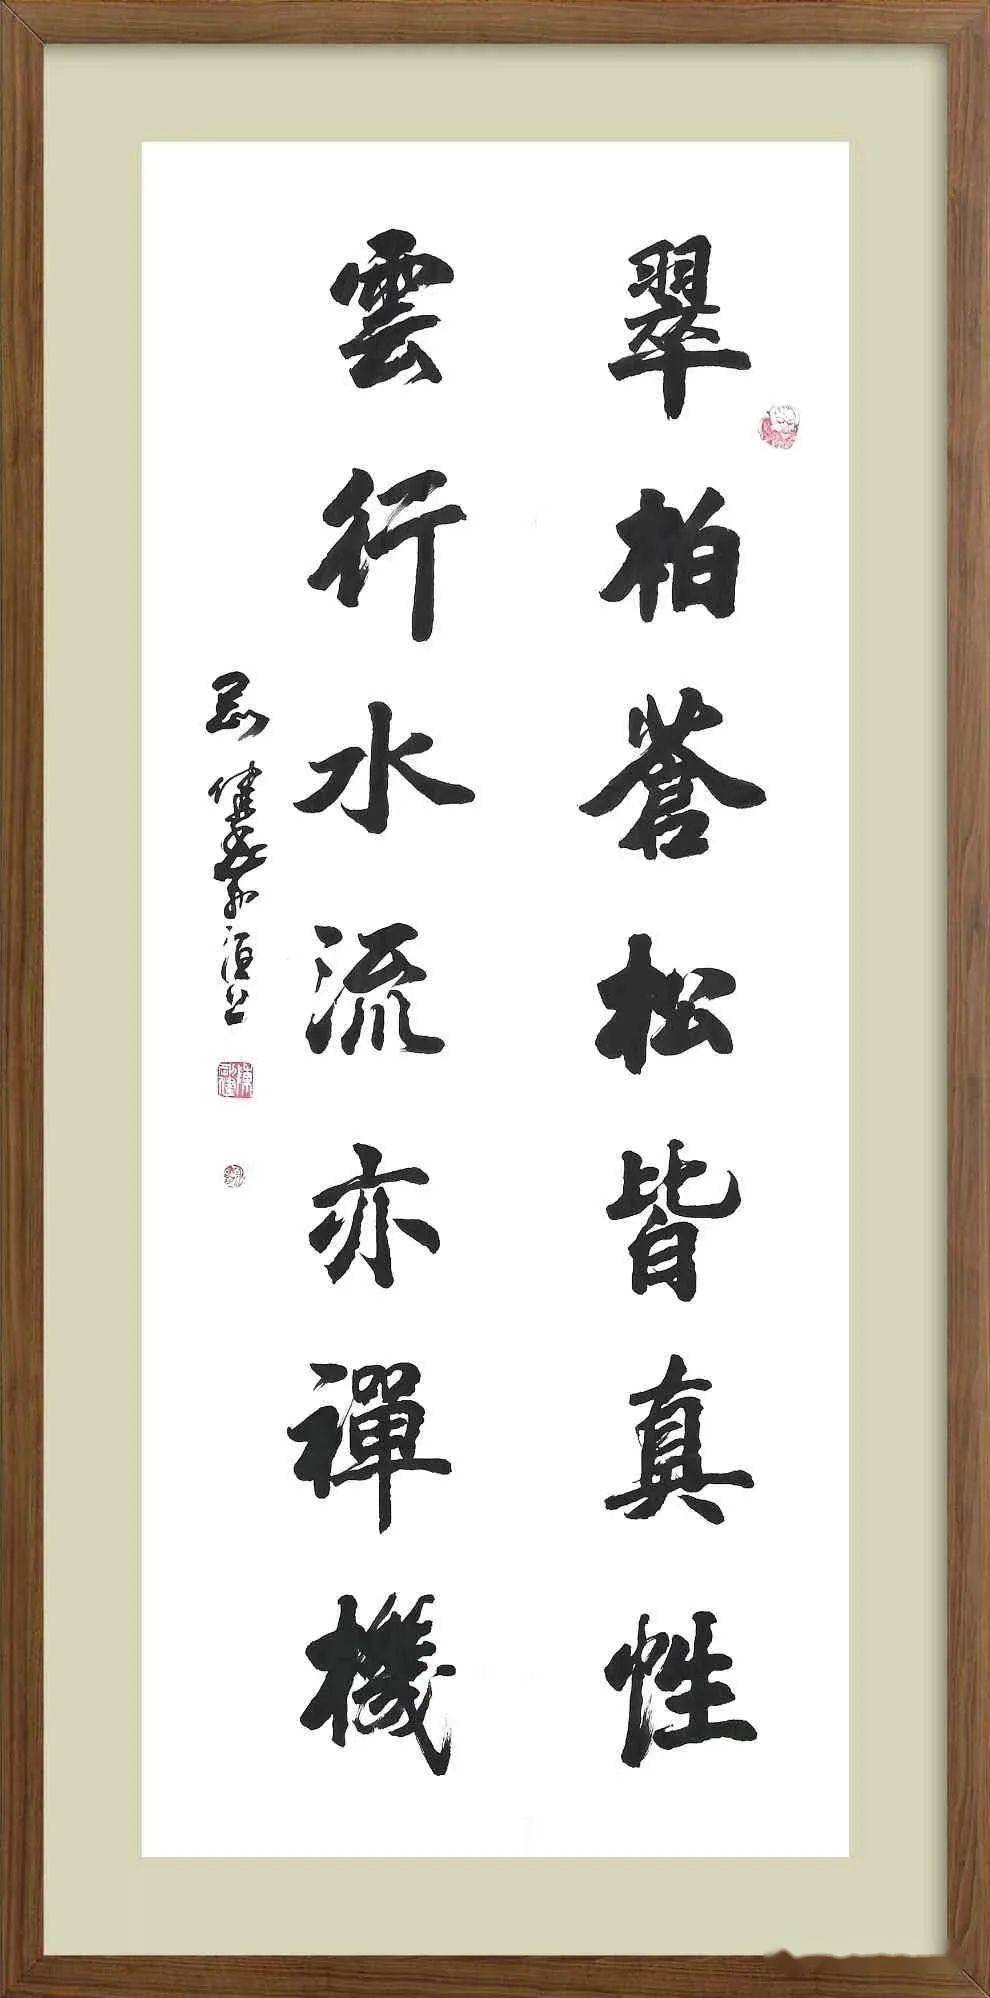 翠柏蒼松皆真性
雲行水流亦禪機